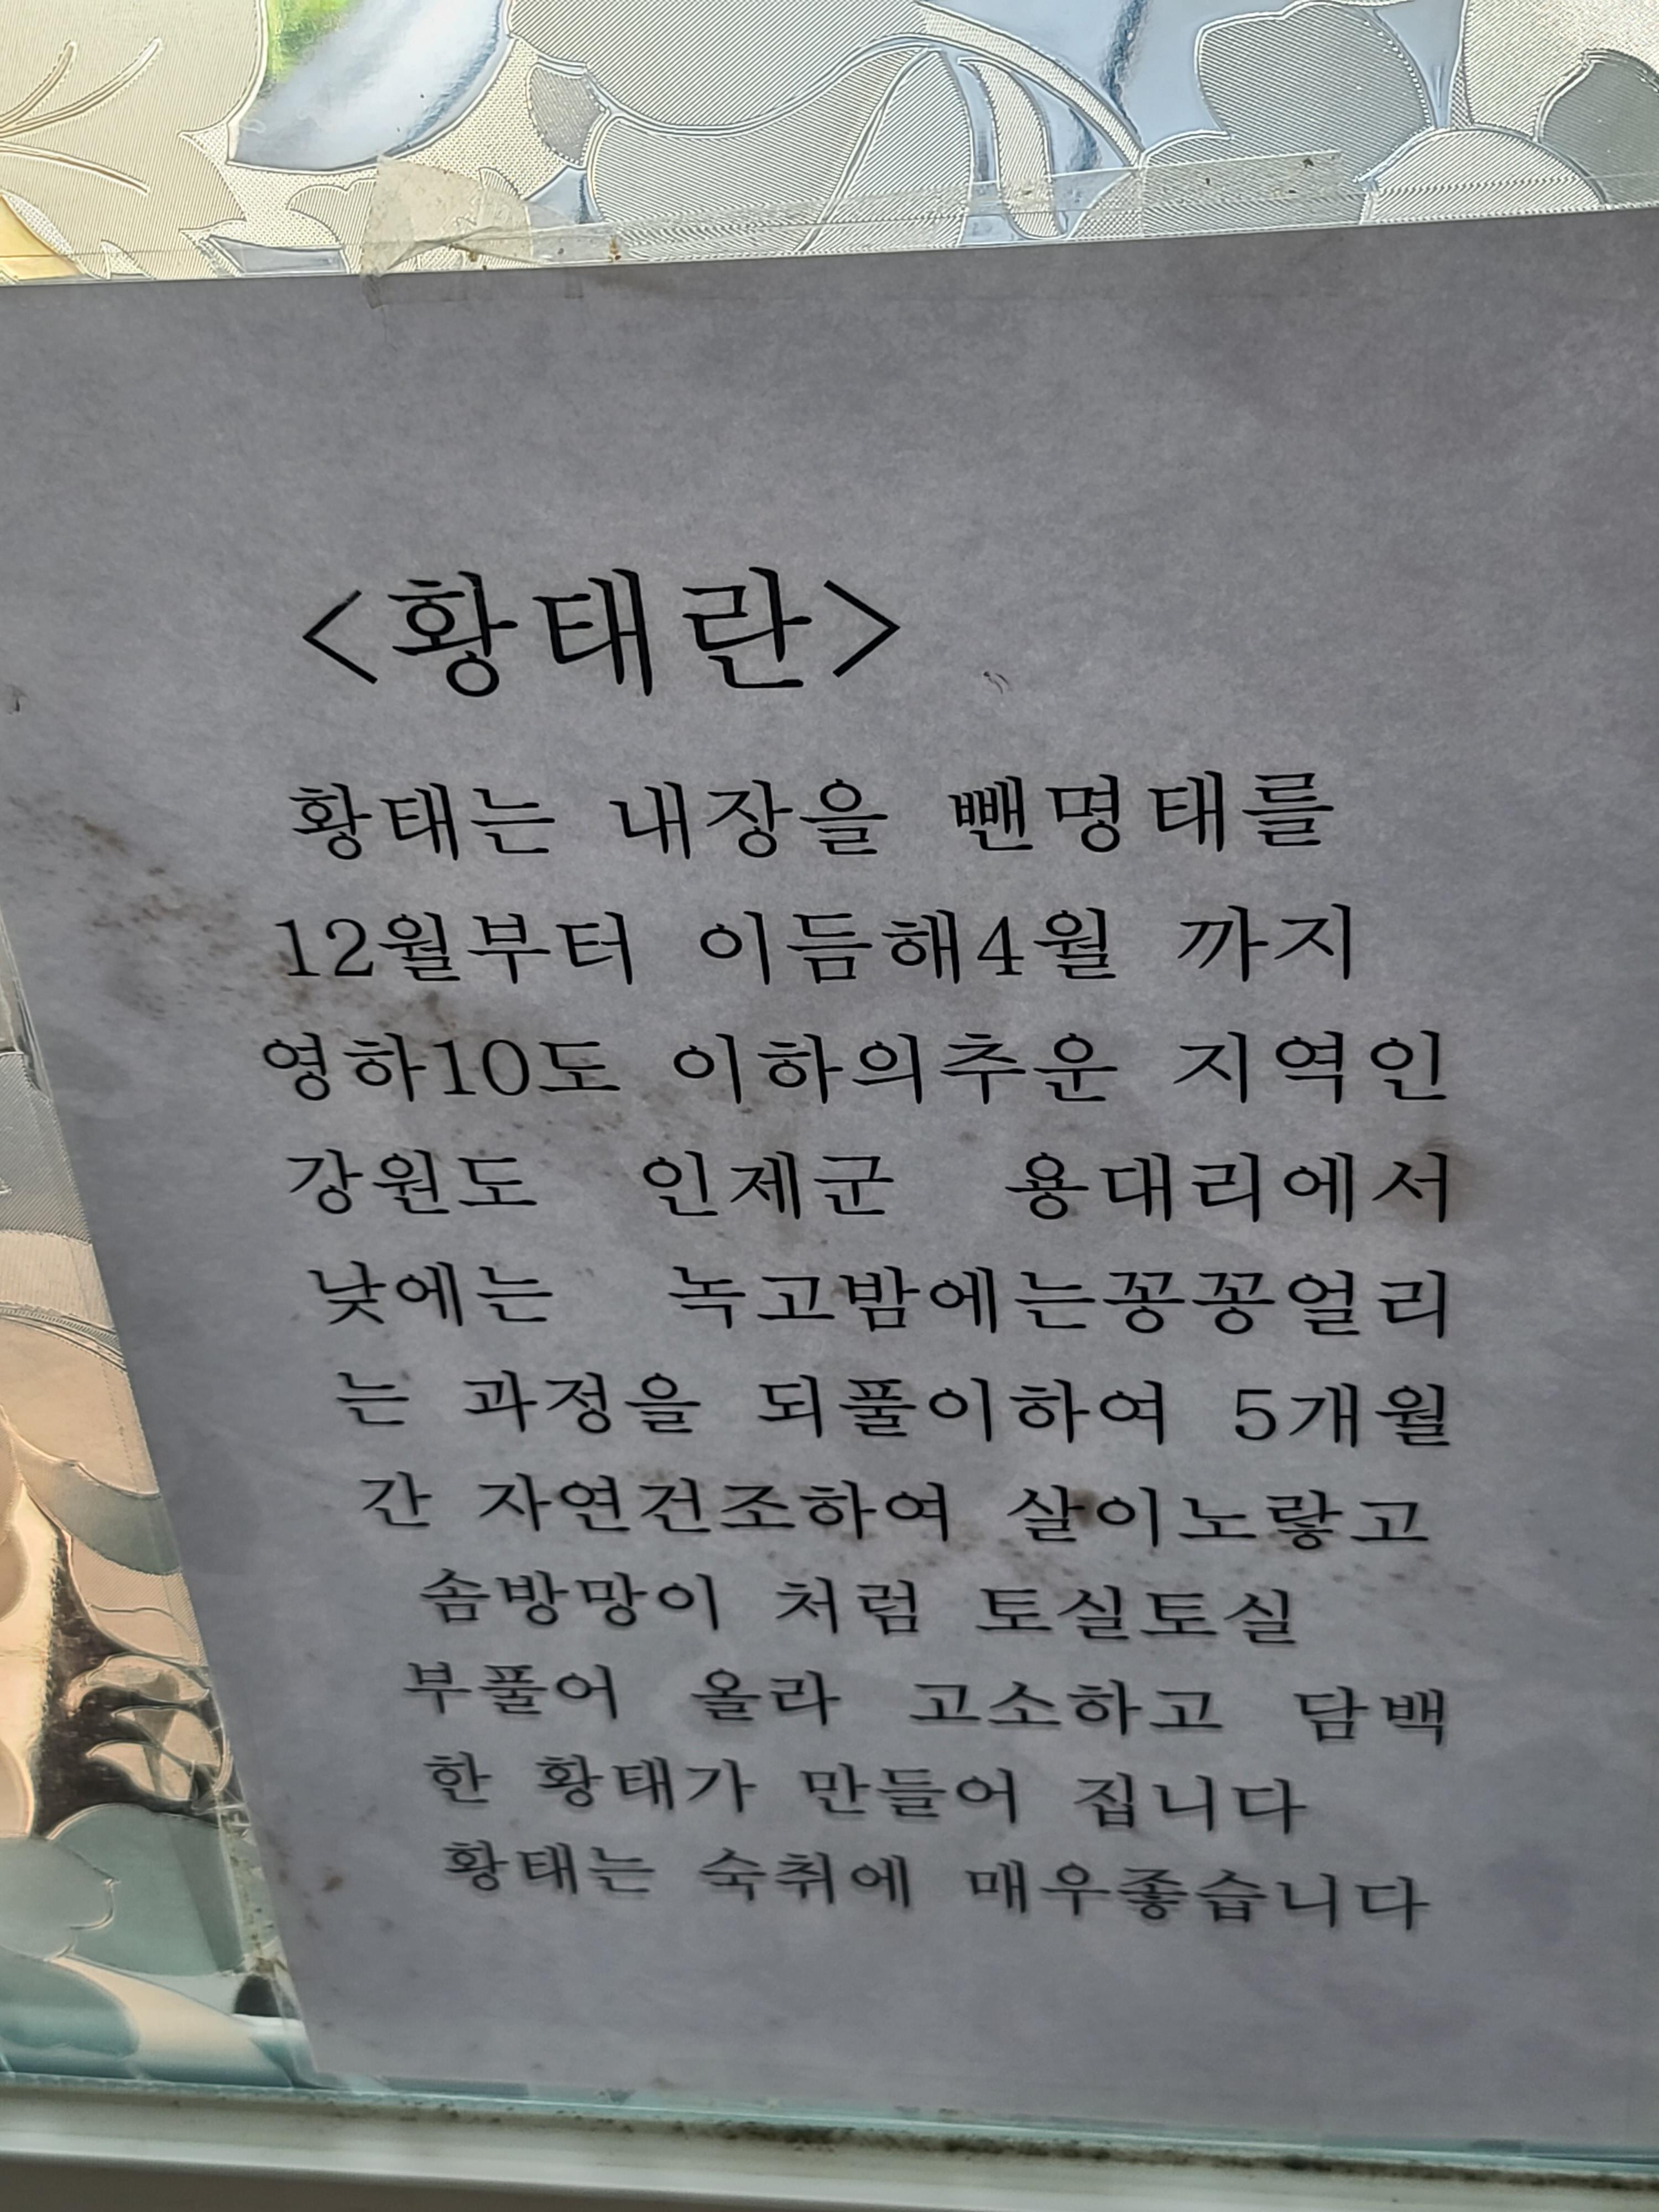 <황태란>
황태는 내장을 뺀명태를
12월부터 이듬해4월 까지
영하10도 이하의추운 지역인
강원도 인제군 용대리에서
낮에는 녹고밤에는꽁꽁얼리
는 과정을 되풀이하여 5개월
간 자연건조하여 살이노랗고
솜방망이 처럼 토실토실
부풀어 올라 고소하고 담백
한 황태가 만들어 집니다
황태는 숙취에 매우좋습니다